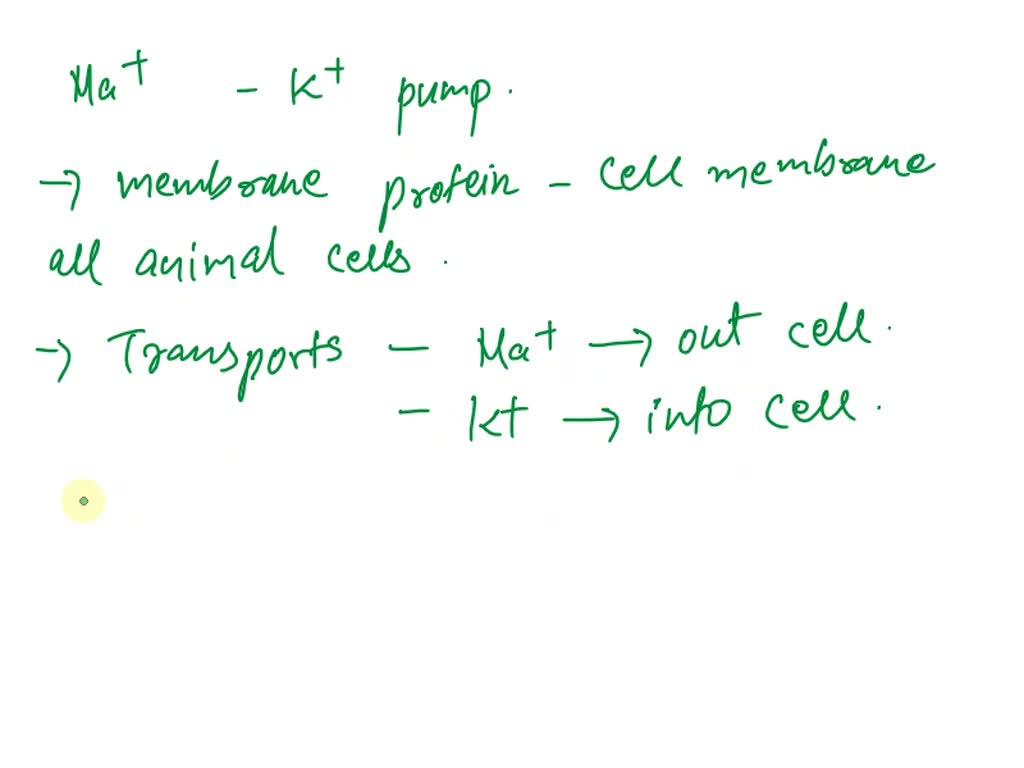 Na⁺ - K⁺ pump.
→ membrane protein - cell membrane
all animal cells.
→ Transports - Na⁺ → out cell.
- K⁺ → into cell.